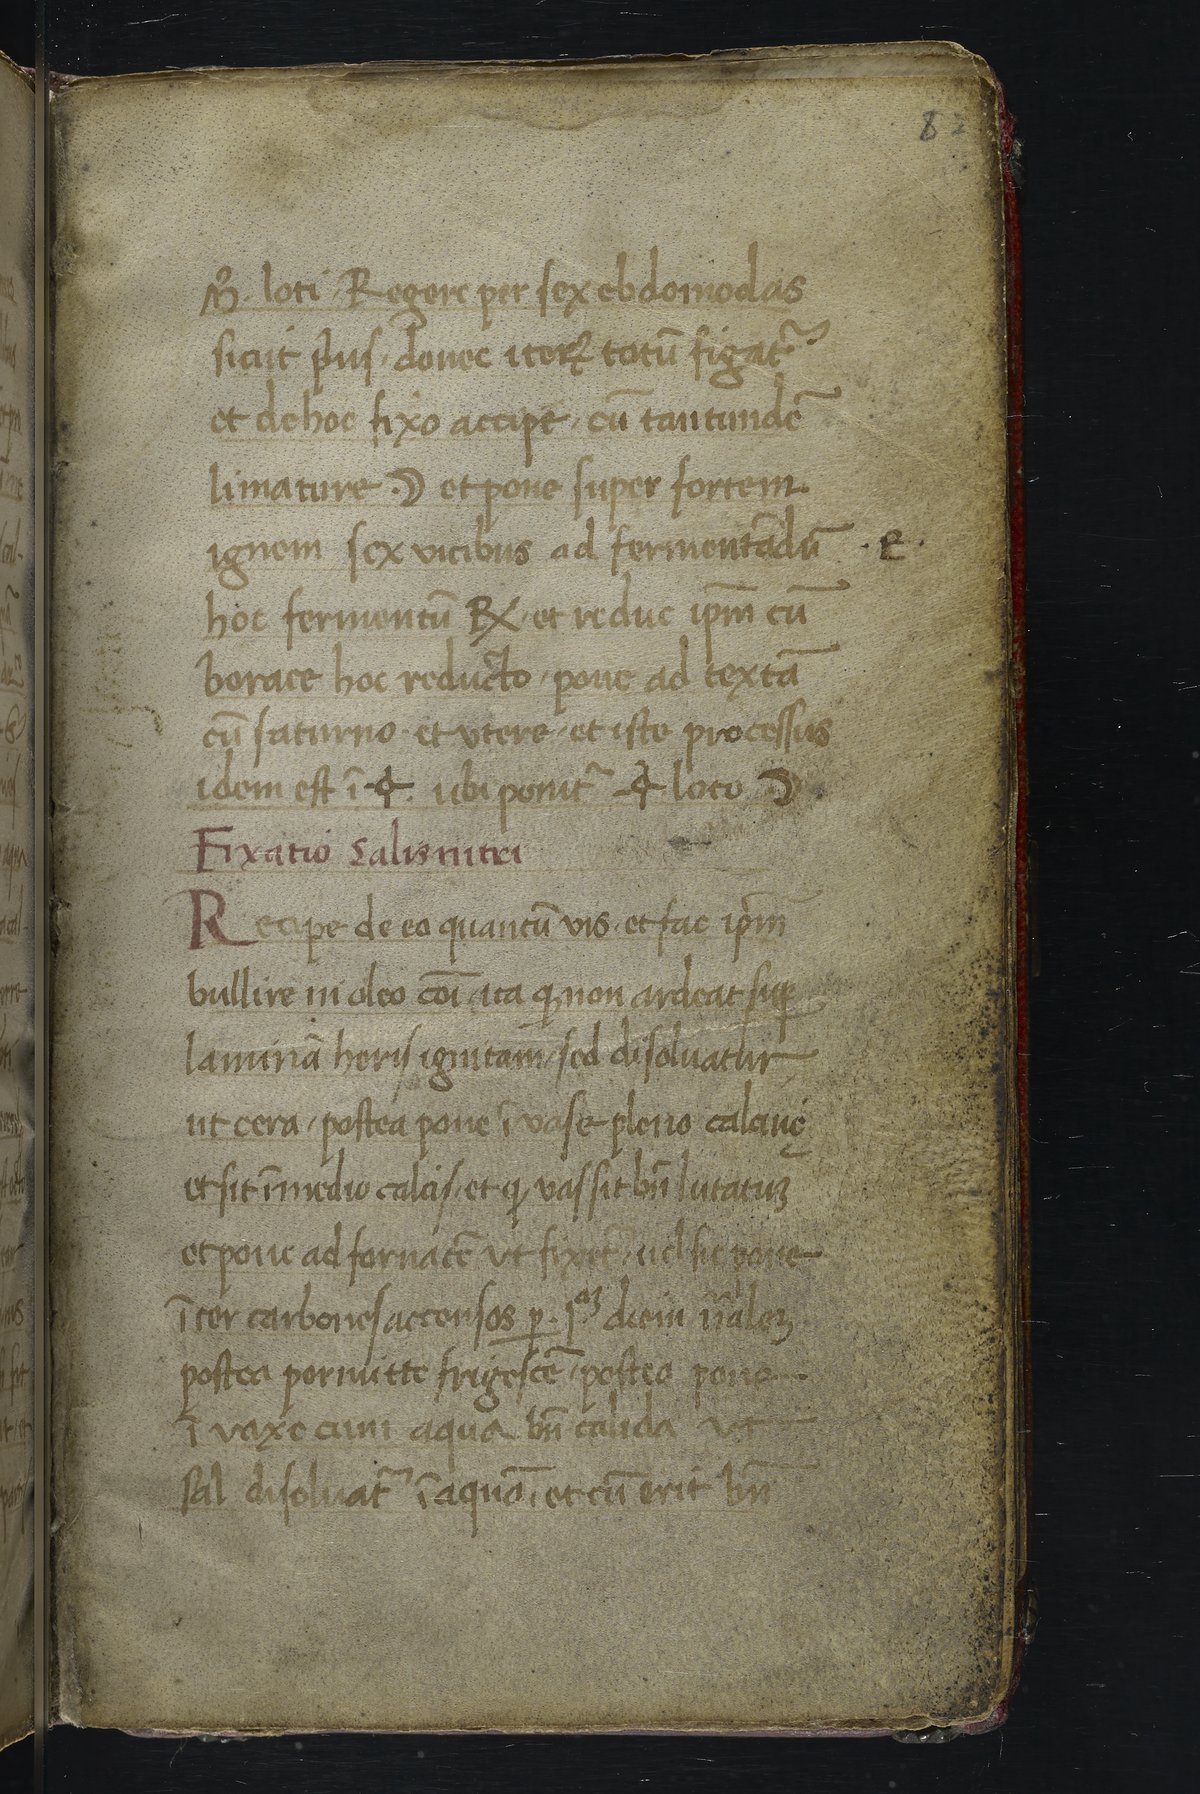 82
m̊. loti. Regere per sex ebdomodas
sicut p̓us. donec iterꝝ totū figat᷑
et de hoc fixo accipe. cū tantundē
limature ☽ et pone super fortem
ignem sex vicibus ad fermentādū .e.
hoc fermentū ℞. et reduc ip̄m cū
borace hoc reducto. pone ad textā
cū saturno et vtere. et iste processus
idem est ī ☿. ubi ponit᷑ ☿ loco ☽
Fixatio salis nitri
Recipe de eo quantū vis. et fac ip̄m
bullire in oleo cōi ita ꝙ non ardeat suꝑ
laminā ignitam, sed disoluatur
ut cera, postea pone ī vase pleno calcis
et sit ī medio calcis, et ꝙ vas sit bn̄ lutatuꝫ
et pone ad fornacē vt fixet᷑. uel sic pone
īter carbones accensos ꝑ .1.ᵃᵐ diem n̄aleꝫ
postea permitte frigescē. postea pone
ī vaxe cum aqua bn̄ calida vt
sal disoluat᷑ ī aquā. et cū erit bn̄